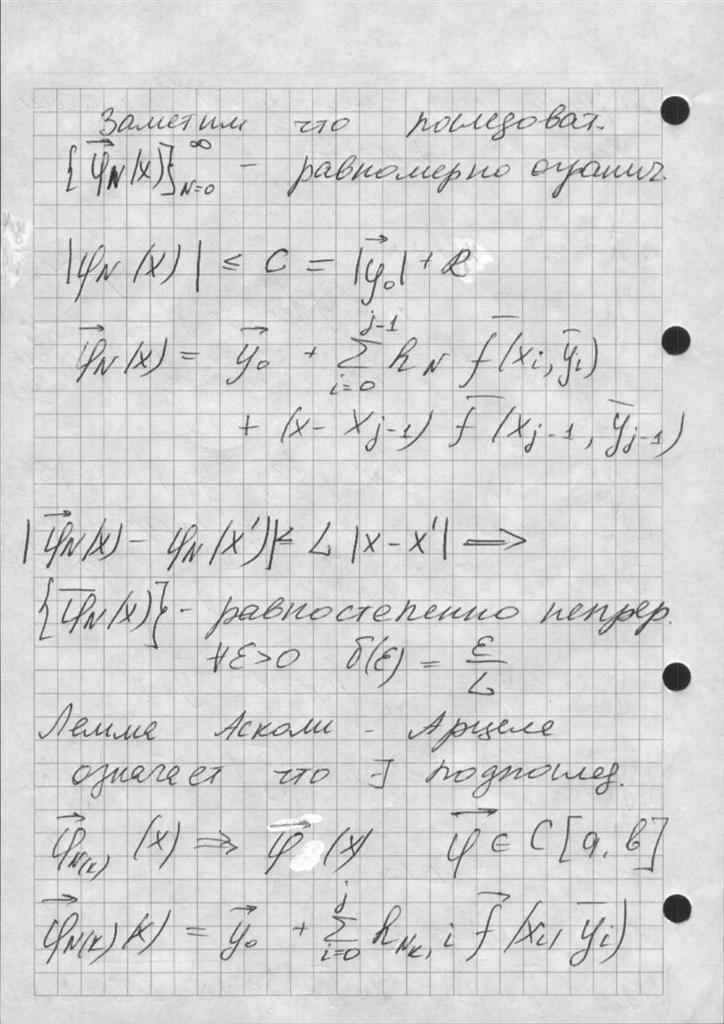 Заметим что последоват.
{φ⃗_N(x)}_{N=0}^∞ - равномерно огранич.
|φ_N(x)| ≤ C = |y⃗_0| + R
φ⃗_N(x) = y⃗_0 + Σ_{i=0}^{j-1} h_N f̄(x_i, ȳ_i)
+ (x - x_{j-1}) f̄(x_{j-1}, ȳ_{j-1})
|φ⃗_N(x) - φ_N(x')| ≤ L |x - x'| ⟹
{φ̄_N(x)} - равностепенно непрер.
∀ε>0 δ(ε) = ε/L
Лемма Асколи - Арцеле
означает что ∃ подпослед.
φ⃗_{N(k)}(x) ⇒ φ⃗(x) φ⃗ ∈ C[a, b]
φ⃗_{N(k)}(x) = y⃗_0 + Σ_{i=0}^{j} h_{N_k, i} f⃗(x_i, ȳ_i)